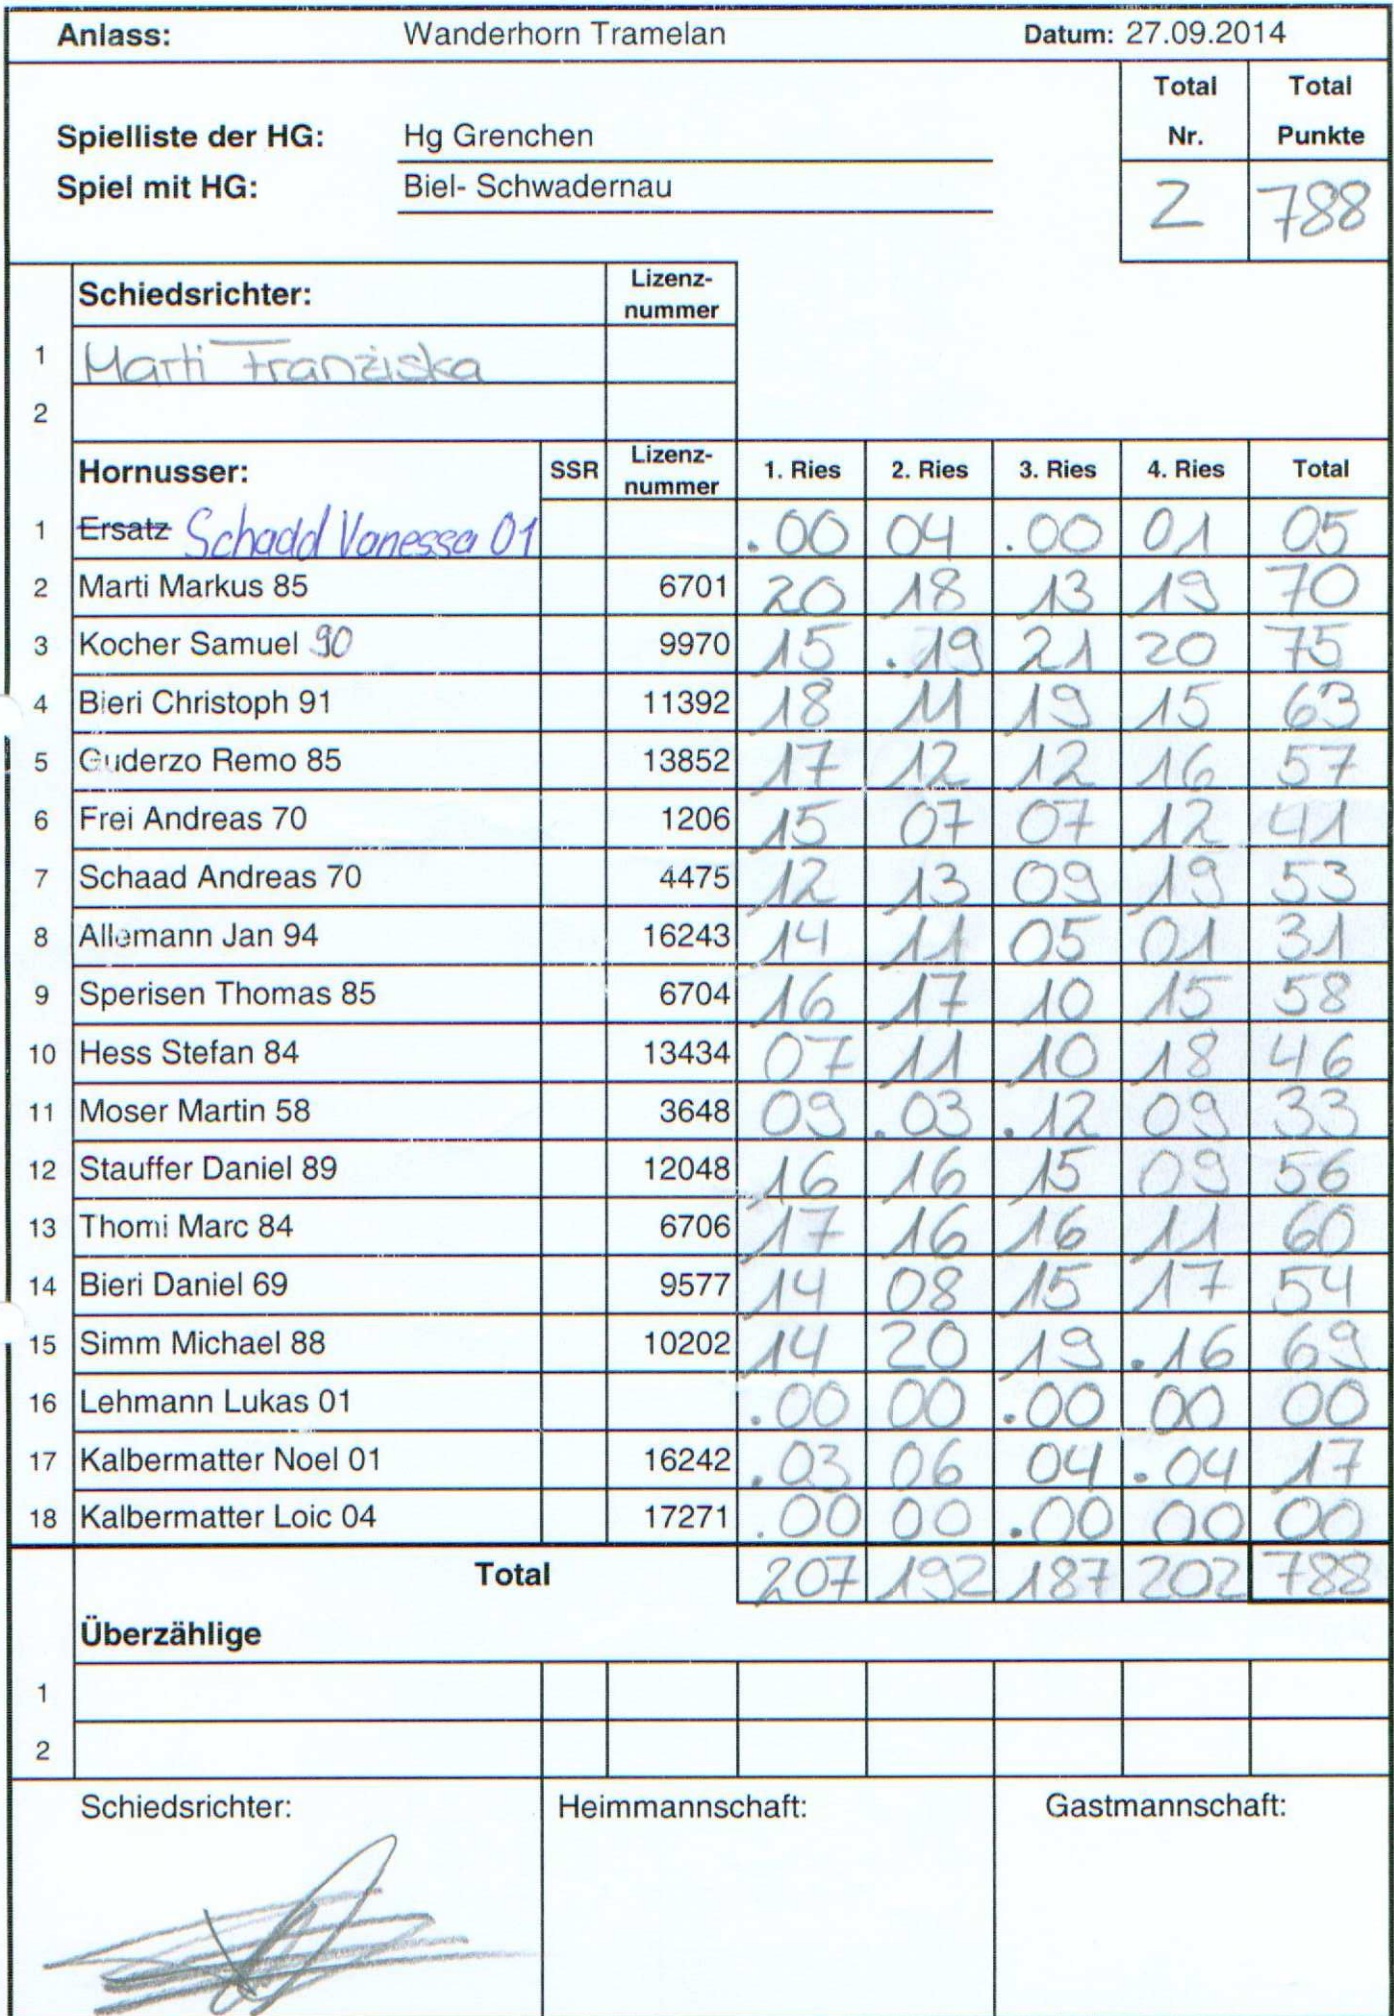 Anlass: Wanderhorn Tramelan Datum: 27.09.2014
Total Total
Nr. Punkte
Spielliste der HG: Hg Grenchen
Spiel mit HG: Biel- Schwadernau
2 788
Schiedsrichter: Lizenz-
nummer
1 Marti Franziska
2
Hornusser: SSR Lizenz-
nummer 1. Ries 2. Ries 3. Ries 4. Ries Total
1 Ersatz Schadd Vanessa 01 .00 04 .00 01 05
2 Marti Markus 85 6701 20 18 13 19 70
3 Kocher Samuel 90 9970 15 .19 21 20 75
4 Bieri Christoph 91 11392 18 11 19 15 63
5 Guderzo Remo 85 13852 17 12 12 16 57
6 Frei Andreas 70 1206 15 07 07 12 41
7 Schaad Andreas 70 4475 12 13 09 19 53
8 Allemann Jan 94 16243 14 11 05 01 31
9 Sperisen Thomas 85 6704 16 17 10 15 58
10 Hess Stefan 84 13434 07 11 10 18 46
11 Moser Martin 58 3648 09 .03 .12 09 33
12 Stauffer Daniel 89 12048 16 16 15 09 56
13 Thomi Marc 84 6706 17 16 16 11 60
14 Bieri Daniel 69 9577 14 08 15 17 54
15 Simm Michael 88 10202 14 20 19 .16 69
16 Lehmann Lukas 01 .00 00 .00 00 00
17 Kalbermatter Noel 01 16242 .03 06 04 .04 17
18 Kalbermatter Loic 04 17271 .00 00 .00 00 00
Total 207 192 187 202 788
Überzählige
1
2
Schiedsrichter: Heimmannschaft: Gastmannschaft: